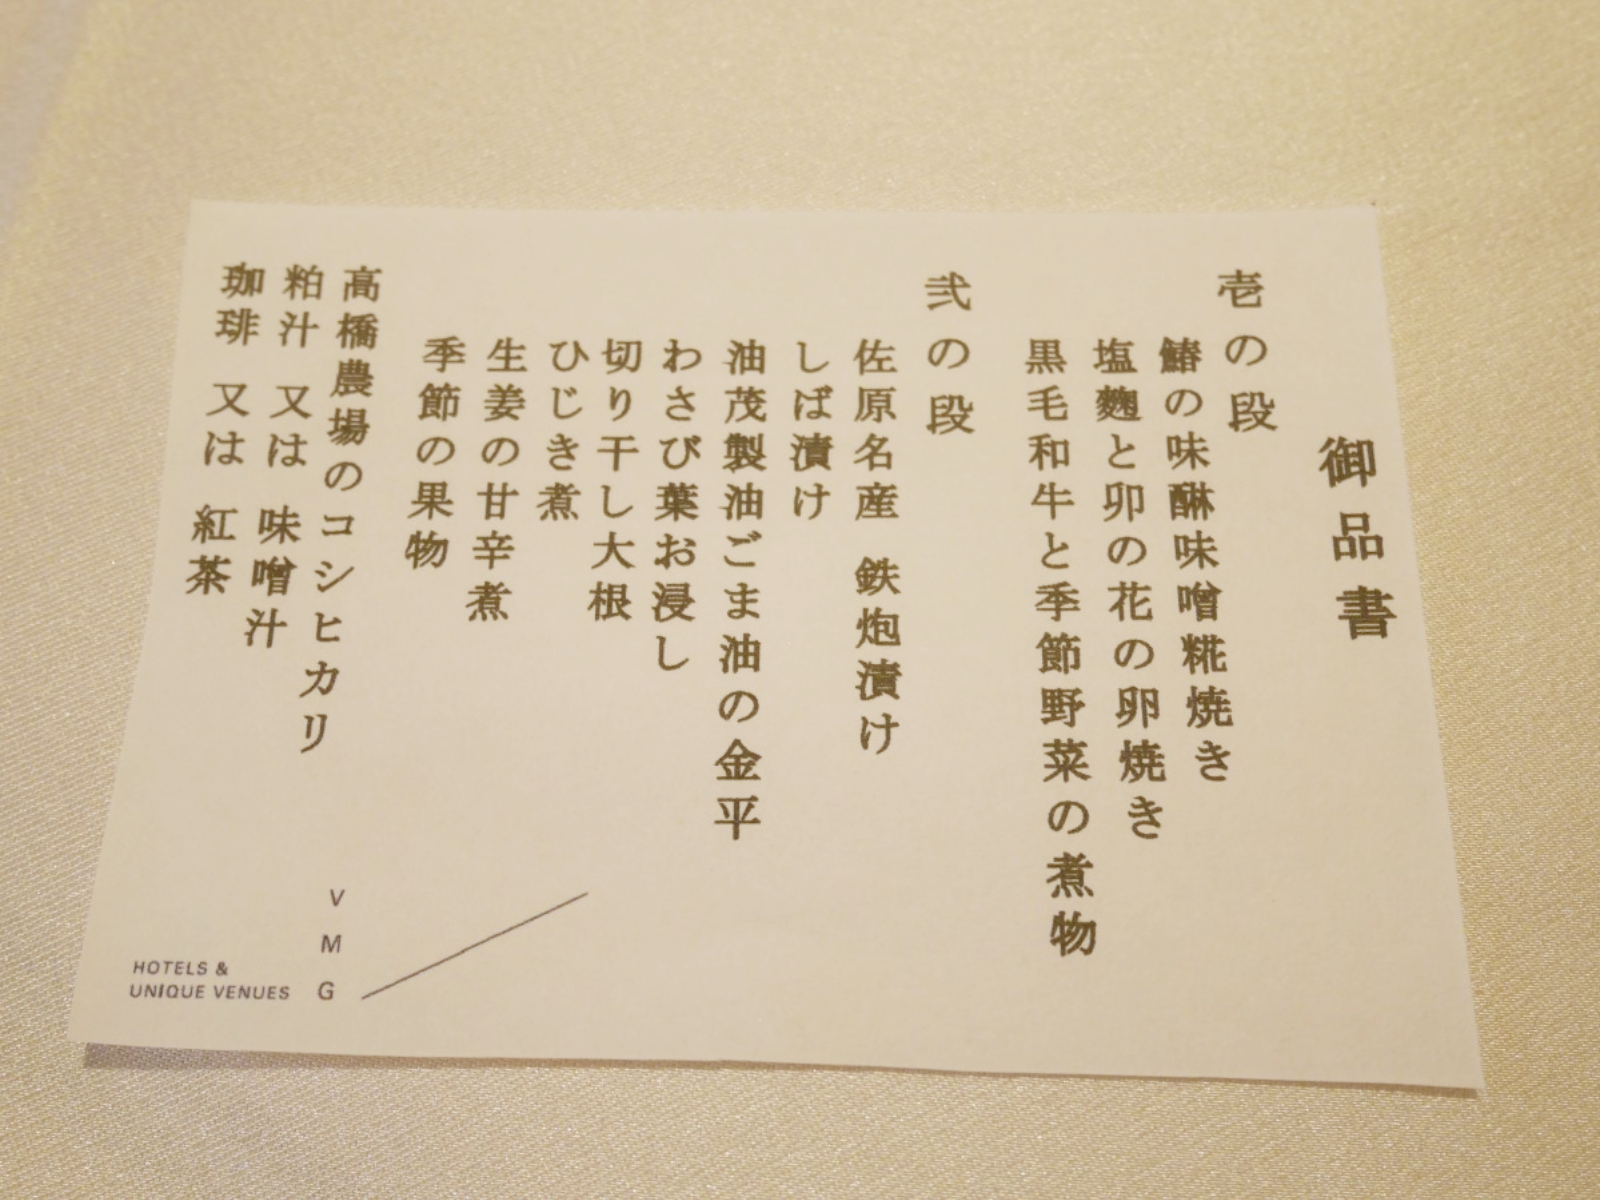 御品書
壱の段
鰆の味醂味噌糀焼き
塩麹と卯の花の卵焼き
黒毛和牛と季節野菜の煮物
弐の段
佐原名産 鉄炮漬け
しば漬け
油茂製油ごま油の金平
わさび葉お浸し
切り干し大根
ひじき煮
生姜の甘辛煮
季節の果物
高橋農場のコシヒカリ
粕汁 又は 味噌汁
珈琲 又は 紅茶
VMG
HOTELS &
UNIQUE VENUES